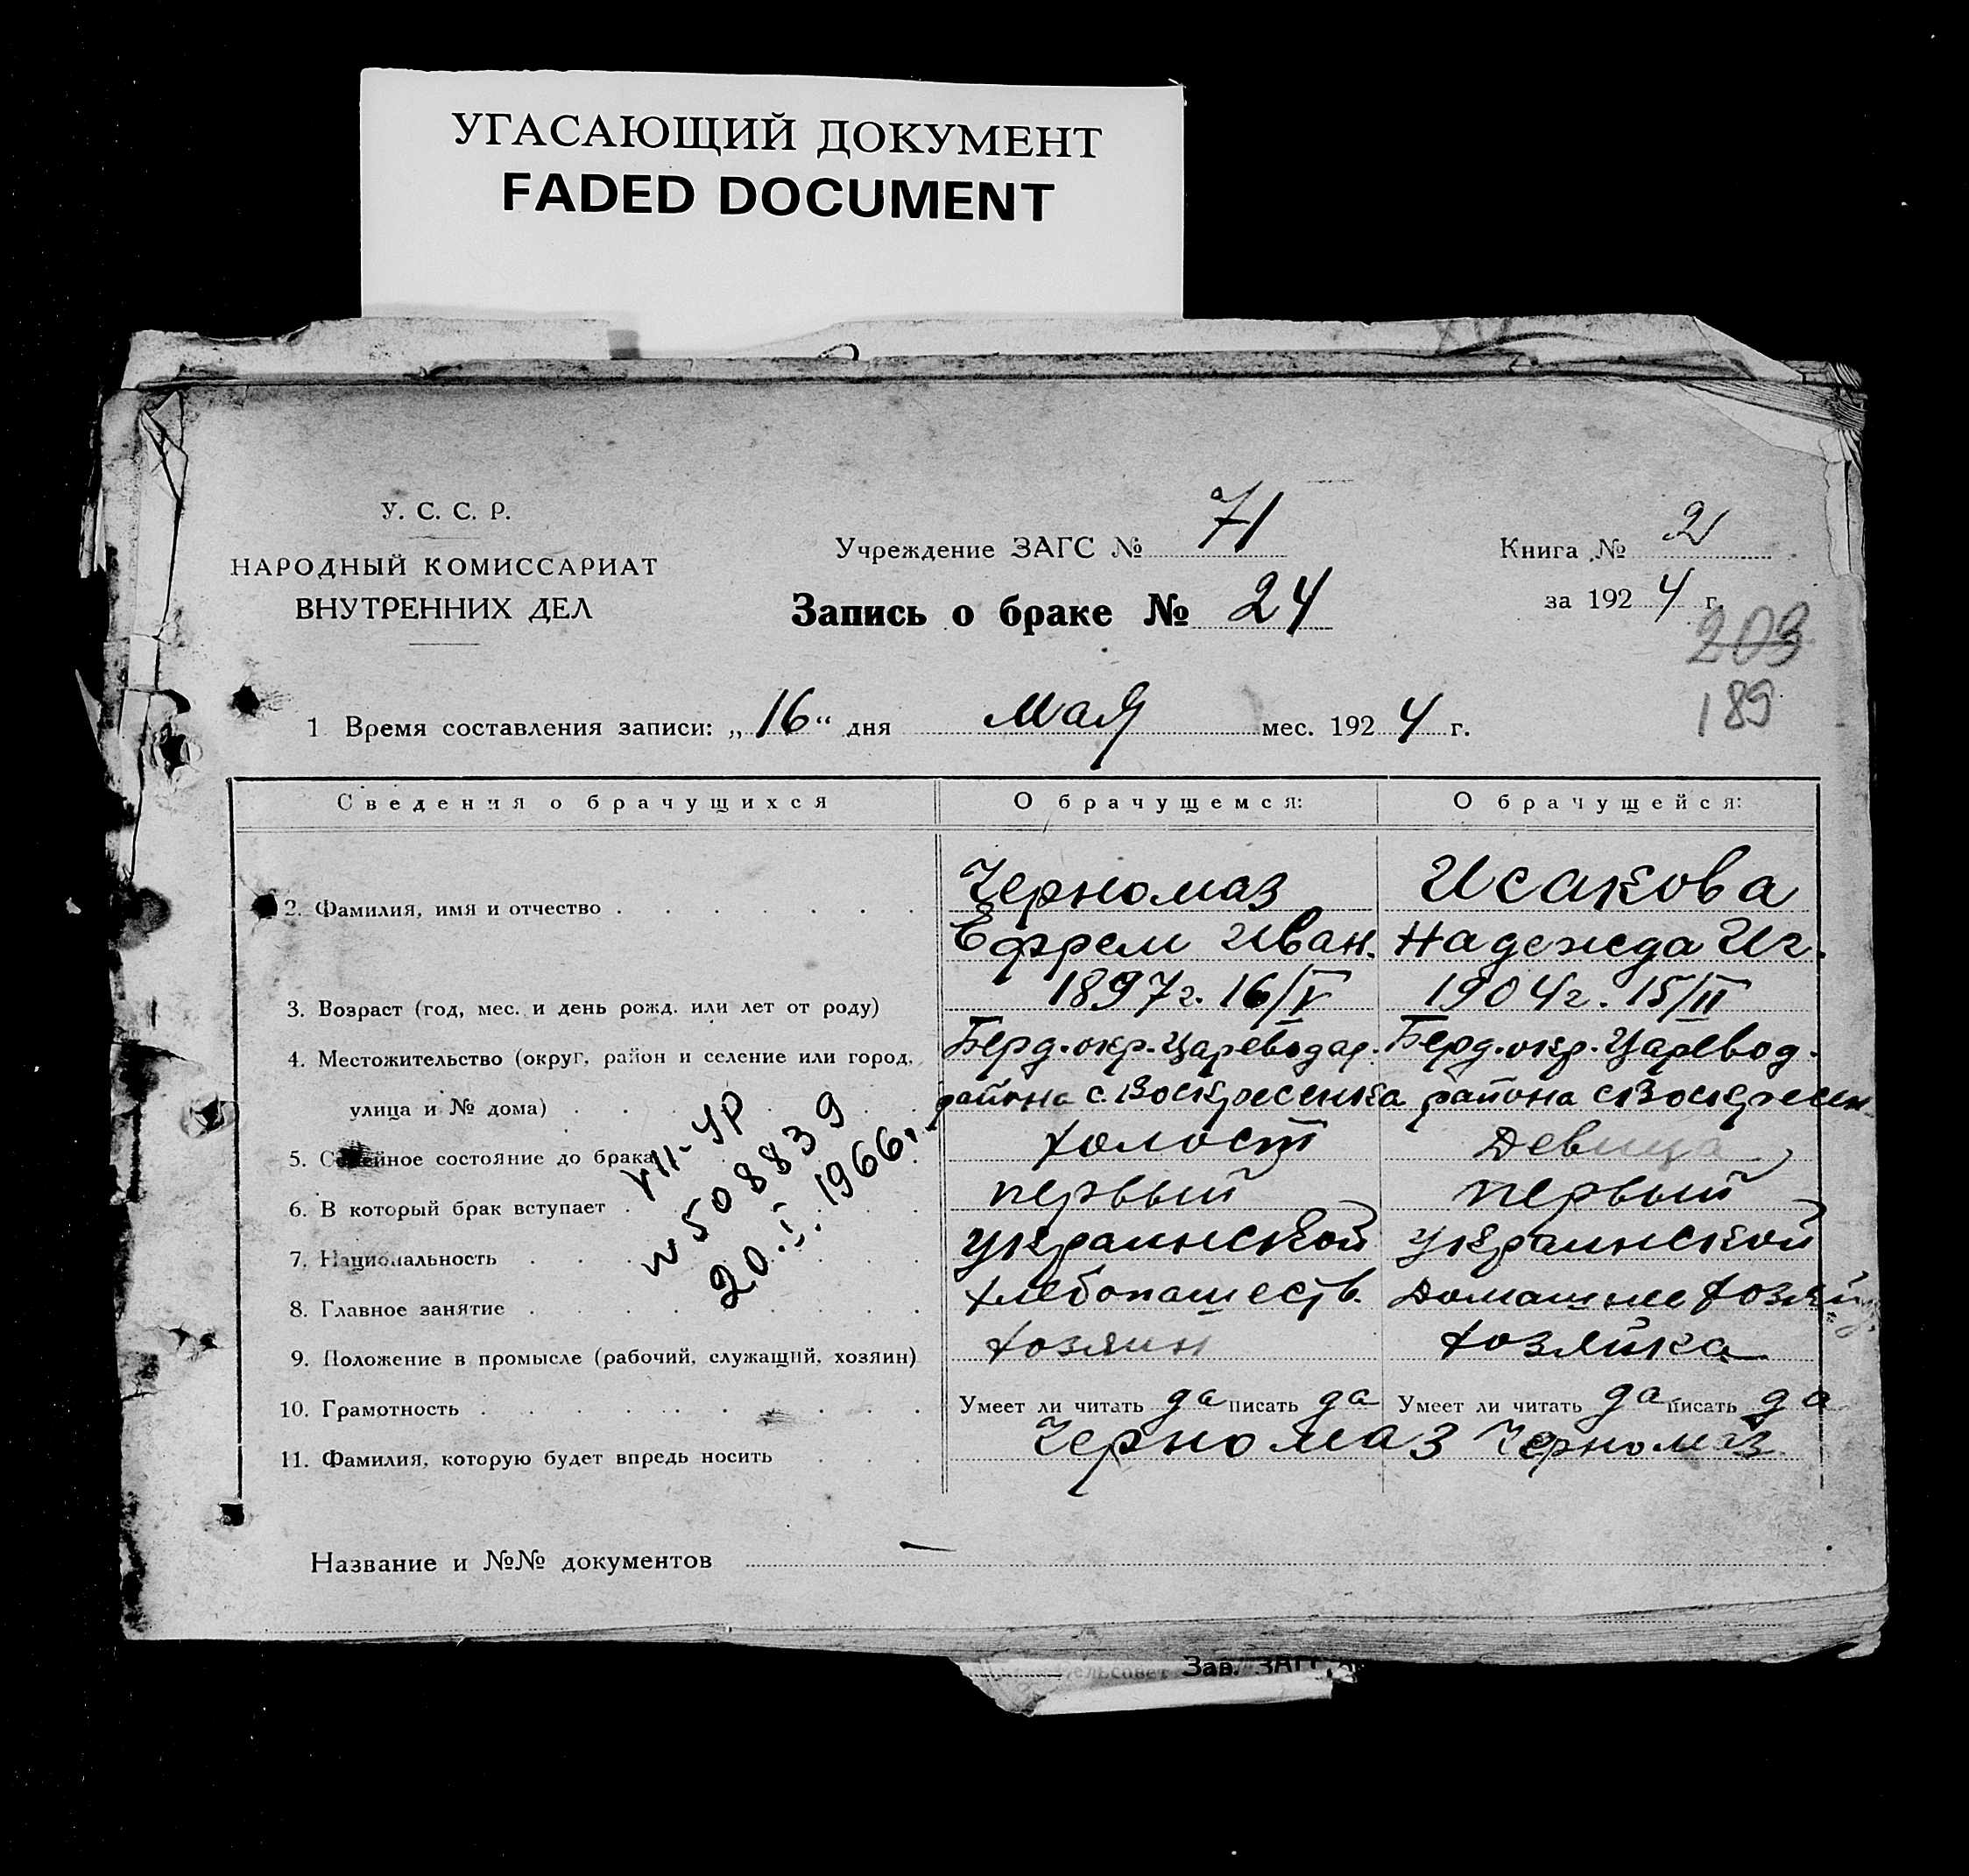 УГАСАЮЩИЙ ДОКУМЕНТ
FADED DOCUMENT
У. С. С. Р.
НАРОДНЫЙ КОМИССАРИАТ
ВНУТРЕННИХ ДЕЛ
Учреждение ЗАГС № 71
Запись о браке № 24
Книга № 2
за 1924 г.
203
189
1 Время составления записи: „16“ дня мая мес. 1924 г.
Сведения о брачущихся О брачущемся: О брачущейся:
2. Фамилия, имя и отчество Черномаз Исакова
Ефрем Иван. Надежда Иг.
3. Возраст (год, мес. и день рожд. или лет от роду) 1897 г. 16/V 1904 г. 15/II
4. Местожительство (округ, район и селение или город, Берд. окр. Цареводар. Берд. окр. Царевод.
улица и № дома) района с. Воскресенка района с Воскресен.
5. Семейное состояние до брака холост девица
6. В который брак вступает первый первый
7. Национальность украинской украинской
8. Главное занятие хлебопашеств. Домашнее хозяй
9. Положение в промысле (рабочий, служащий, хозяин) хозяин хозяйка
10. Грамотность Умеет ли читать да писать да Умеет ли читать да писать да
11. Фамилия, которую будет впредь носить Черномаз Черномаз
VII-УР
№ 508839
20.I.1966г.
Название и №№ документов —
сельсовет Зав. ЗАГС